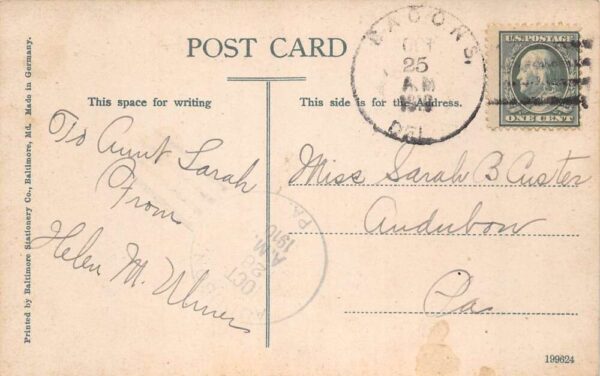 POST CARD
This space for writing
This side is for the Address.
BACONS,
OCT
25
A.M
1910
DEL.
U.S. POSTAGE
ONE CENT
To Aunt Sarah
From
Helen M. Ulmer
Miss Sarah B Custer
Audubon
Pa
PA.
OCT
26
A.M.
1910
Printed by Baltimore Stationery Co., Baltimore, Md. Made in Germany.
199624